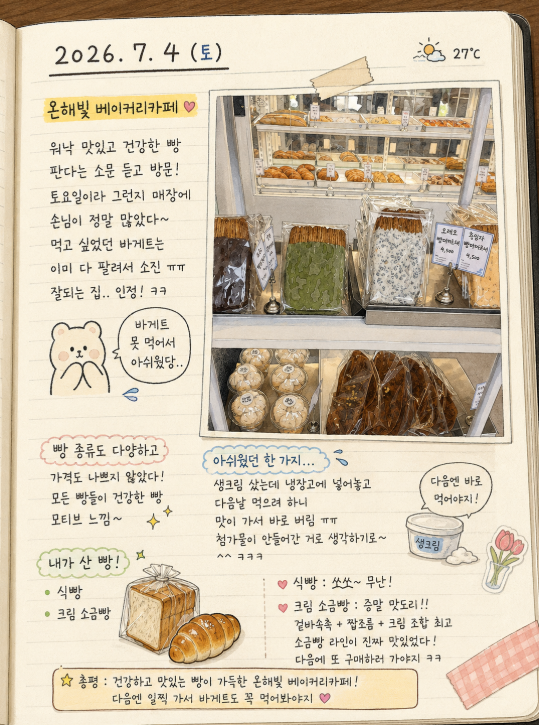 2026. 7. 4 (토)
27°C
온해빛 베이커리카페
워낙 맛있고 건강한 빵
판다는 소문 듣고 방문!
토요일이라 그런지 매장에
손님이 정말 많았다~
먹고 싶었던 바게트는
이미 다 팔려서 소진 ㅠㅠ
잘되는 집.. 인정! ㅋㅋ
바게트
못 먹어서
아쉬웠당..
4,500
빵 종류도 다양하고
가격도 나쁘지 않았다!
모든 빵들이 건강한 빵
모티브 느낌~
아쉬웠던 한 가지...
생크림 샀는데 냉장고에 넣어놓고
다음날 먹으려 하니
맛이 가서 바로 버림 ㅠㅠ
첨가물이 안들어간 거로 생각하기로~
^^ ㅋㅋㅋ
다음엔 바로
먹어야지!
생크림
내가 산 빵!
식빵
크림 소금빵
식빵 : 쏘쏘~ 무난!
크림 소금빵 : 증말 맛도리!!
겉바속촉 + 짭조름 + 크림 조합 최고
소금빵 라인이 진짜 맛있었다!
다음에 또 구매하러 가야지 ㅋㅋ
총평 : 건강하고 맛있는 빵이 가득한 온해빛 베이커리카페!
다음엔 일찍 가서 바게트도 꼭 먹어봐야지